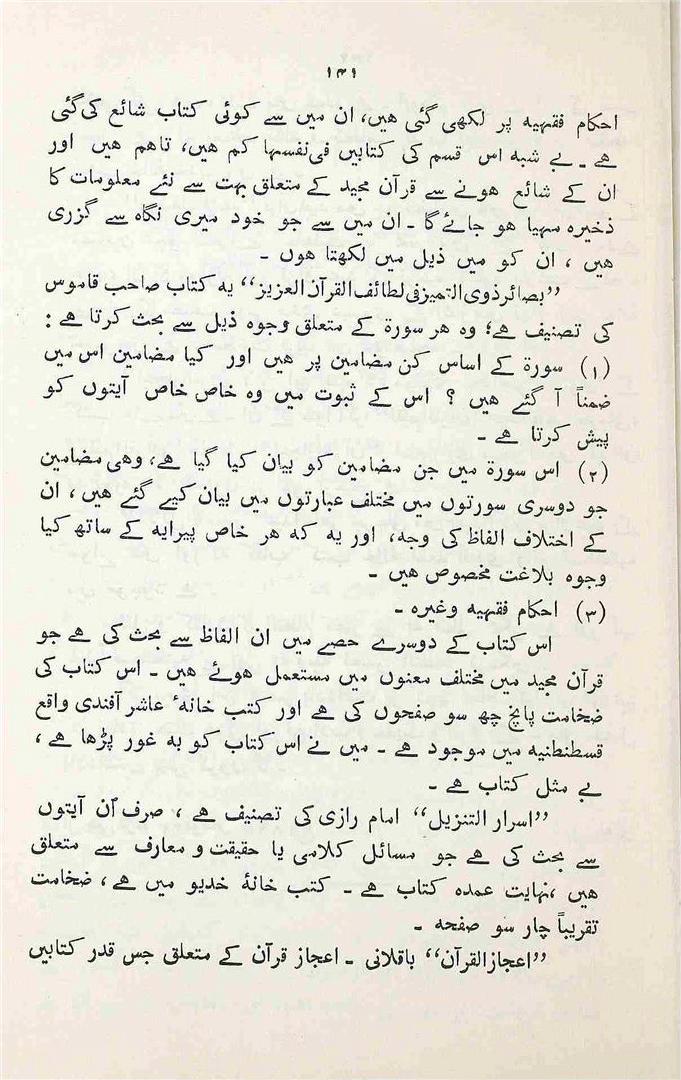 ۱۴۱
احکام فقہیہ پر لکھی گئی ھیں، ان میں سے کوئی کتاب شائع کی گئی
ھے ۔ بے شبہ اس قسم کی کتابیں فی نفسہا کم ھیں، تاھم ھیں اور
ان کے شائع ھونے سے قرآن مجید کے متعلق بہت سے نئے معلومات کا
ذخیرہ مہیا ھو جائے گا ۔ ان میں سے جو خود میری نگاہ سے گزری
ھیں ، ان کو میں ذیل میں لکھتا ھوں ۔
”بصائر ذوی التمیز فی لطائف القرآن العزیز“ یہ کتاب صاحب قاموس
کی تصنیف ھے؛ وہ ھر سورۃ کے متعلق وجوہ ذیل سے بحث کرتا ھے :
(۱) سورۃ کے اساس کن مضامین پر ھیں اور کیا مضامین اس میں
ضمناً آ گئے ھیں ؟ اس کے ثبوت میں وہ خاص خاص آیتوں کو
پیش کرتا ھے ۔
(۲) اس سورۃ میں جن مضامین کو بیان کیا گیا ھے، وھی مضامین
جو دوسری سورتوں میں مختلف عبارتوں میں بیان کیے گئے ھیں ، ان
کے اختلاف الفاظ کی وجہ، اور یہ کہ ھر خاص پیرایہ کے ساتھ کیا
وجوہ بلاغت مخصوص ھیں ۔
(۳) احکام فقہیہ وغیرہ ۔
اس کتاب کے دوسرے حصے میں ان الفاظ سے بحث کی ھے جو
قرآن مجید میں مختلف معنوں میں مستعمل ھوئے ھیں ۔ اس کتاب کی
ضخامت پانچ چھ سو صفحوں کی ھے اور کتب خانۂ عاشر آفندی واقع
قسطنطنیہ میں موجود ھے ۔ میں نے اس کتاب کو بہ غور پڑھا ھے ،
بے مثل کتاب ھے ۔
”اسرار التنزیل“ امام رازی کی تصنیف ھے ، صرف اُن آیتوں
سے بحث کی ھے جو مسائل کلامی یا حقیقت و معارف سے متعلق
ھیں ،نہایت عمدہ کتاب ھے ۔ کتب خانۂ خدیو میں ھے، ضخامت
تقریباً چار سو صفحہ ۔
”اعجاز القرآن“ باقلانی ۔ اعجاز قرآن کے متعلق جس قدر کتابیں